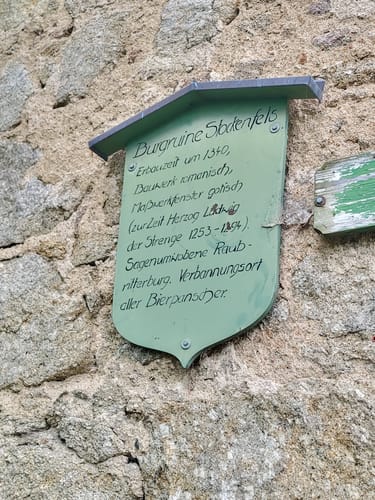 Burgruine Stockenfels
Erbauzeit um 1340,
Bauwerk romanisch,
Maßwerkfenster gotisch
(zur Zeit Herzog Ludwig
der Strenge 1253-1294).
Sagenumwobene Raub-
ritterburg. Verbannungsort
aller Bierpanscher.